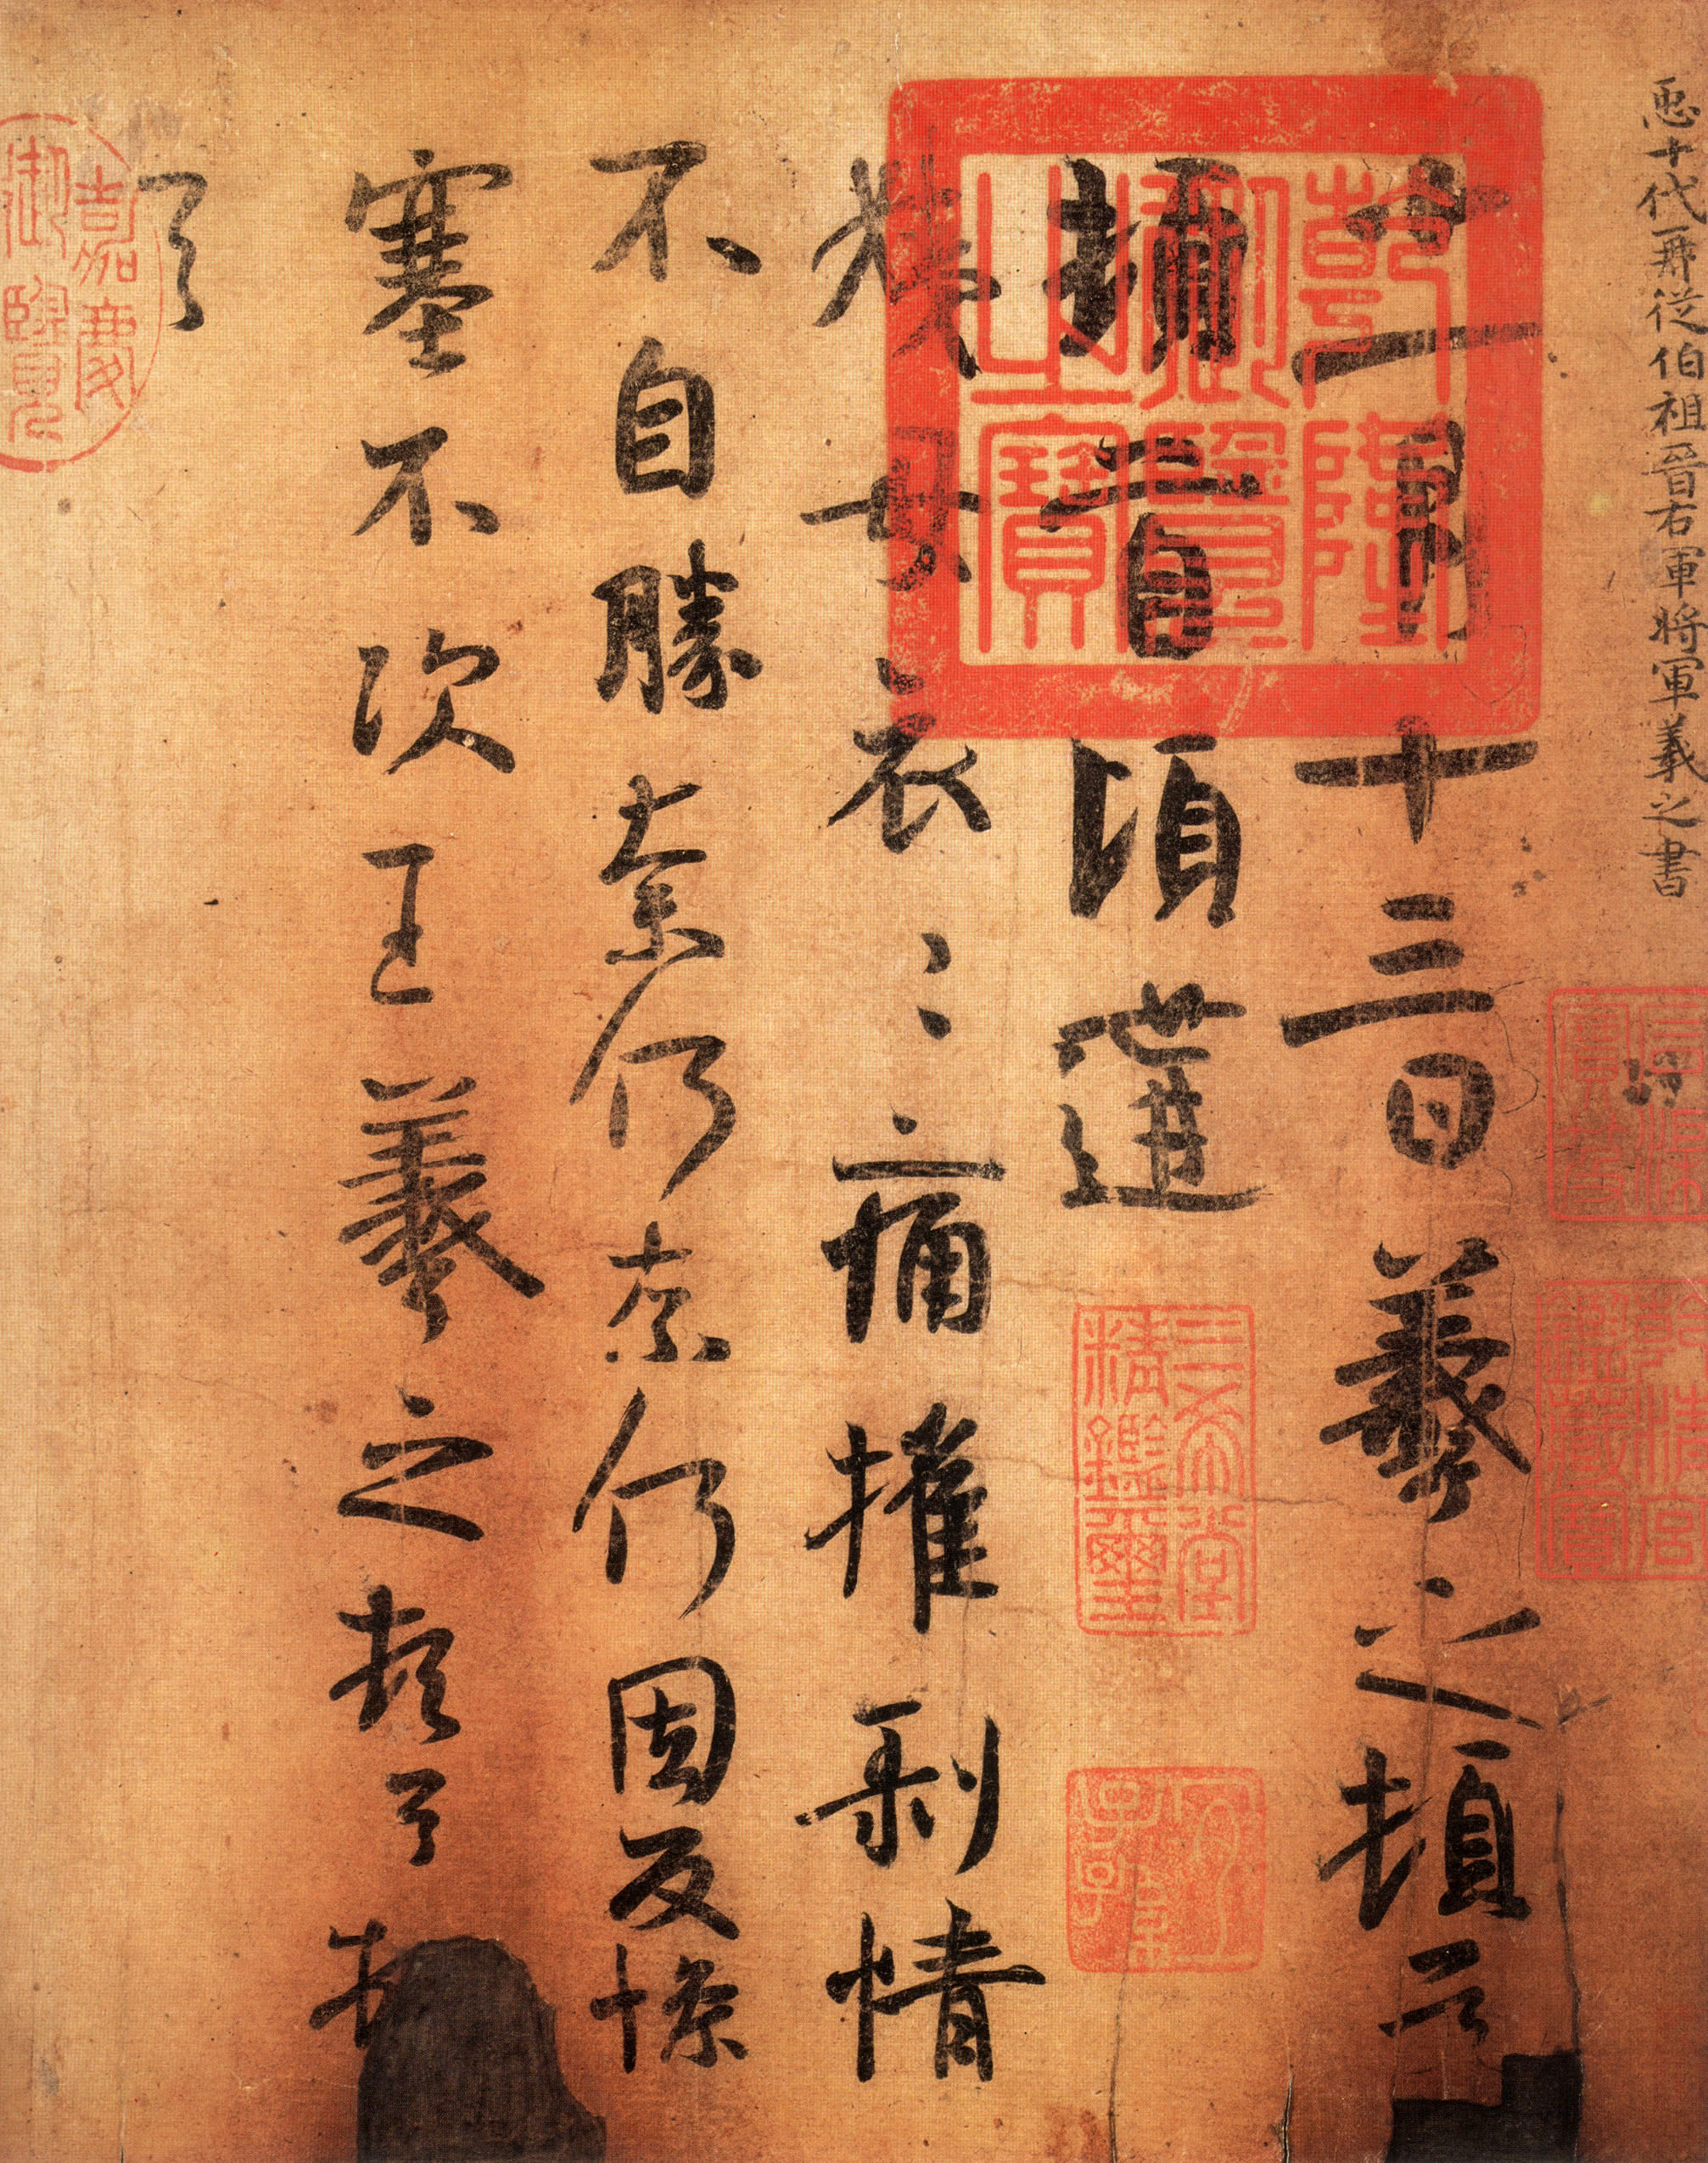 𢘑十代再從伯祖晉右軍將軍羲之書
石渠寶笈
乾清宮鑑藏寶
十一月十三日羲之頓首
頓首頃遘
乾隆御覽之寶
三希堂精鑑璽
宜子孫
姨母哀〻痛摧剝情
不自勝奈何奈何因反慘
塞不次王羲之頓首頓
首
嘉慶御覽